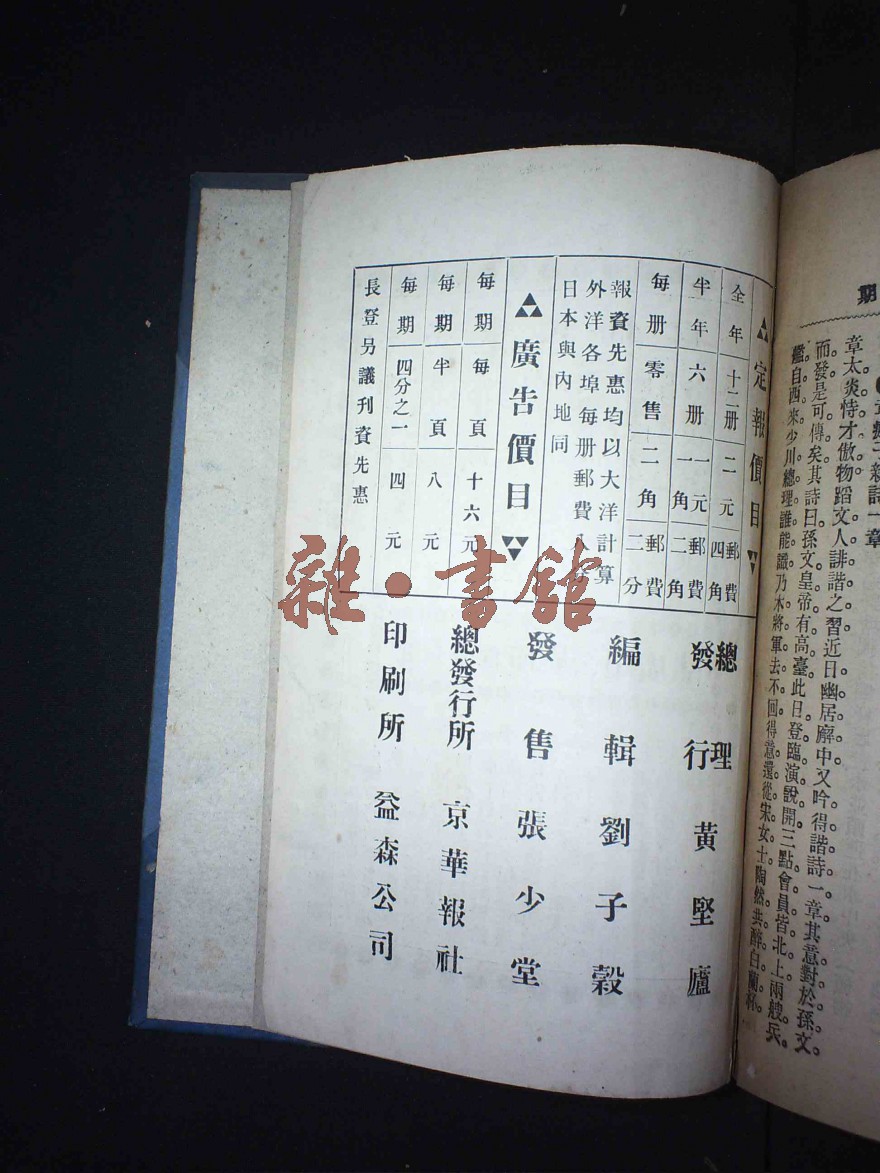 期
章太炎恃才傲物蹈文人誹諧之習近日幽居廨中又吟得諧詩一章其意對於孫文
而發是可傳矣其詩曰孫文皇帝有高臺此日登臨演說開三點會員皆北上兩艘兵
艦自西來少川總理誰能識乃木將軍去不回得意還從宋女士陶然共醉白蘭杯
定報價目
全年 十二册 二元 郵費四角
半年 六册 一元一角 郵費二角
每册 零售 二角 郵費二分
報資先惠均以大洋計算
外洋各埠每册郵費八分
日本與內地同
廣告價目
每期 每頁 十六元
每期 半頁 八元
每期 四分之一 四元
長登另議刊資先惠
總理
發行 黃堅廬
編輯 劉子穀
發售 張少堂
總發行所 京華報社
印刷所 益森公司
雜·書館